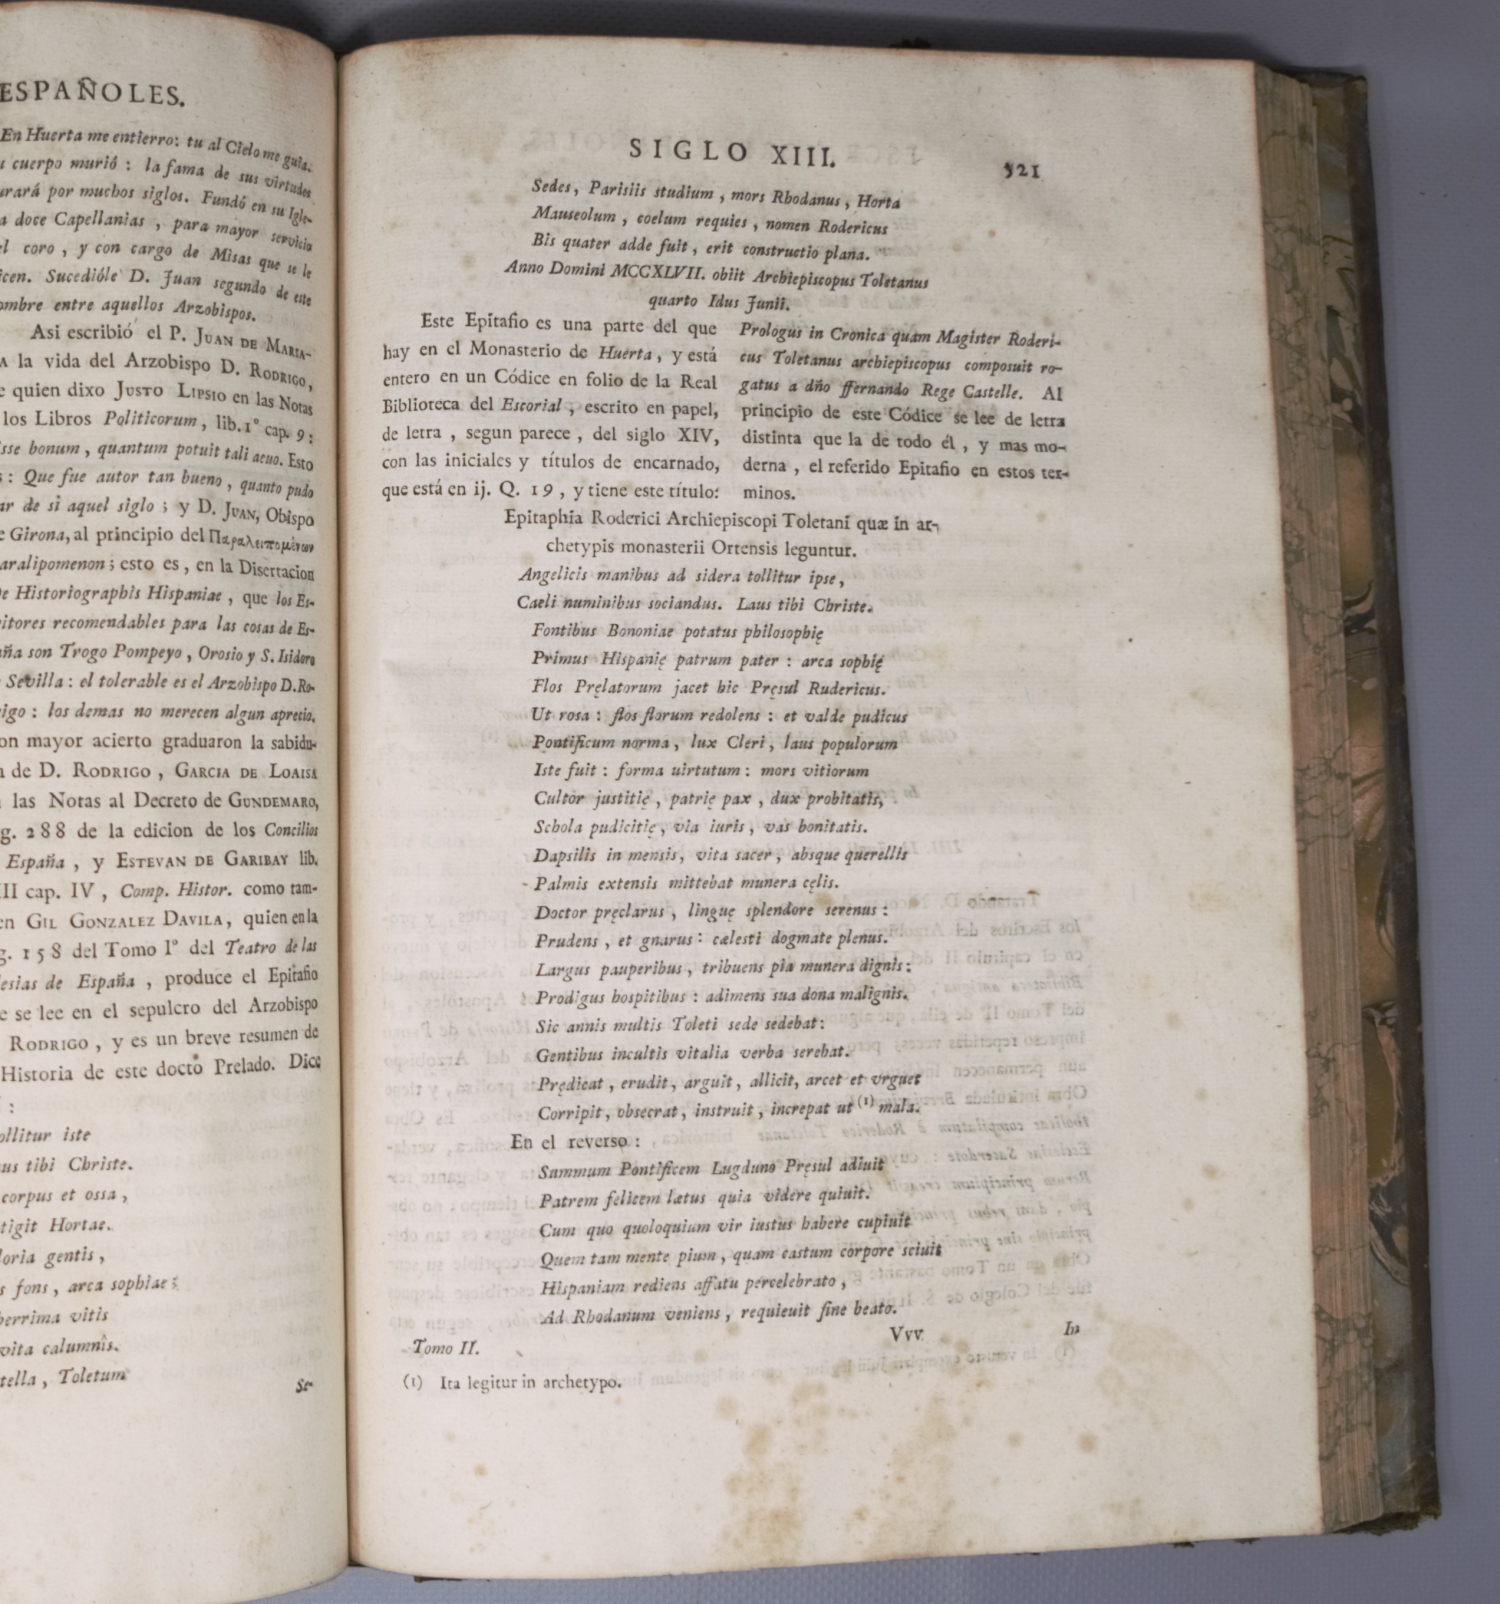 ESPAÑOLES.
En Huerta me entierro: tu al Cielo me guia.
cuerpo murió : la fama de sus virtudes
urará por muchos siglos. Fundó en su Igle-
a doce Capellanias , para mayor servicio
el coro , y con cargo de Misas que se le
icen. Sucedióle D. Juan segundo de este
ombre entre aquellos Arzobispos.
Asi escribió el P. JUAN DE MARIA-
A la vida del Arzobispo D. RODRIGO,
e quien dixo JUSTO LIPSIO en las Notas
los Libros Politicorum , lib.1º cap. 9:
sse bonum , quantum potuit tali aeuo. Esto
s : Que fue autor tan bueno , quanto pudo
ar de si aquel siglo ; y D. JUAN, Obispo
e Girona, al principio del Παραλειπομένων
aralipomenon ; esto es , en la Disertacion
e Historiographis Hispaniae , que los Es-
itores recomendables para las cosas de Es-
aña son Trogo Pompeyo , Orosio y S. Isidoro
Sevilla : el tolerable es el Arzobispo D. Ro-
igo : los demas no merecen algun aprecio.
on mayor acierto graduaron la sabidu-
a de D. RODRIGO , GARCIA DE LOAISA
las Notas al Decreto de GUNDEMARO,
g. 288 de la edicion de los Concilios
España , y ESTEVAN DE GARIBAY lib.
III cap. IV , Comp. Histor. como tam-
en GIL GONZALEZ DAVILA, quien en la
g. 158 del Tomo Iº del Teatro de las
lesias de España , produce el Epitafio
e se lee en el sepulcro del Arzobispo
RODRIGO , y es un breve resumen de
Historia de este docto Prelado. Dice
:
ollitur iste
us tibi Christe.
corpus et ossa ,
tigit Hortae.
loria gentis ,
s fons , arca sophiae ;
berrima vitis
vita calumnis.
tella , Toletum
Se-
SIGLO XIII.
521
Sedes, Parisiis studium , mors Rhodanus , Horta
Mauseolum , coelum requies , nomen Rodericus
Bis quater adde fuit , erit constructio plana.
Anno Domini MCCXLVII. obiit Archiepiscopus Toletanus
quarto Idus Junii.
Este Epitafio es una parte del que
hay en el Monasterio de Huerta , y está
entero en un Códice en folio de la Real
Biblioteca del Escorial , escrito en papel,
de letra , segun parece , del siglo XIV,
con las iniciales y títulos de encarnado,
que está en ij. Q. 19 , y tiene este título:
Prologus in Cronica quam Magister Roderi-
cus Toletanus archiepiscopus composuit ro-
gatus a dño ffernando Rege Castelle. Al
principio de este Códice se lee de letra
distinta que la de todo él , y mas mo-
derna , el referido Epitafio en estos ter-
minos.
Epitaphia Roderici Archiepiscopi Toletani quæ in ar-
chetypis monasterii Ortensis leguntur.
Angelicis manibus ad sidera tollitur ipse,
Caeli numinibus sociandus. Laus tibi Christe.
Fontibus Bononiae potatus philosophię
Primus Hispanię patrum pater : arca sophię
Flos Pręlatorum jacet hic Pręsul Rudericus.
Ut rosa : flos florum redolens : et valde pudicus
Pontificum norma , lux Cleri , laus populorum
Iste fuit : forma uirtutum : mors vitiorum
Cultor justitię , patrię pax , dux probitatis,
Schola pudicitię , via iuris , vas bonitatis.
Dapsilis in mensis, vita sacer , absque querellis
Palmis extensis mittebat munera cęlis.
Doctor pręclarus , linguę splendore serenus :
Prudens , et gnarus : cælesti dogmate plenus.
Largus pauperibus , tribuens pia munera dignis :
Prodigus hospitibus : adimens sua dona malignis.
Sic annis multis Toleti sede sedebat :
Gentibus incultis vitalia verba serebat.
Prędicat , erudit, arguit , allicit, arcet et vrguet
Corripit, obsecrat , instruit , increpat ut (1) mala.
En el reverso :
Summum Pontificem Lugduno Pręsul adiuit
Patrem felicem lætus quia videre quiuit.
Cum quo quoloquium vir iustus habere cupiuit
Quem tam mente pium , quam castum corpore sciuit
Hispaniam rediens affatu percelebrato ,
Ad Rhodanum veniens , requieuit fine beato.
Tomo II.
Vvv
In
(1) Ita legitur in archetypo.